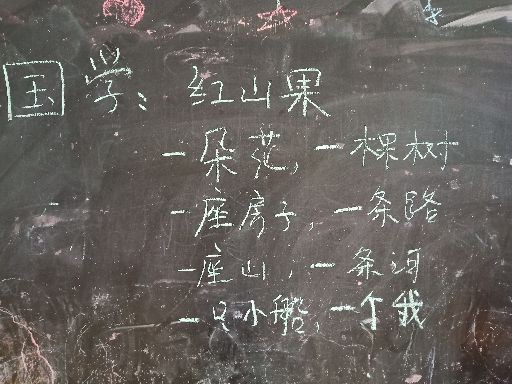 国学：红山果
一朵花，一棵树
一座房子，一条路
一座山，一条河
一只小船，一个我